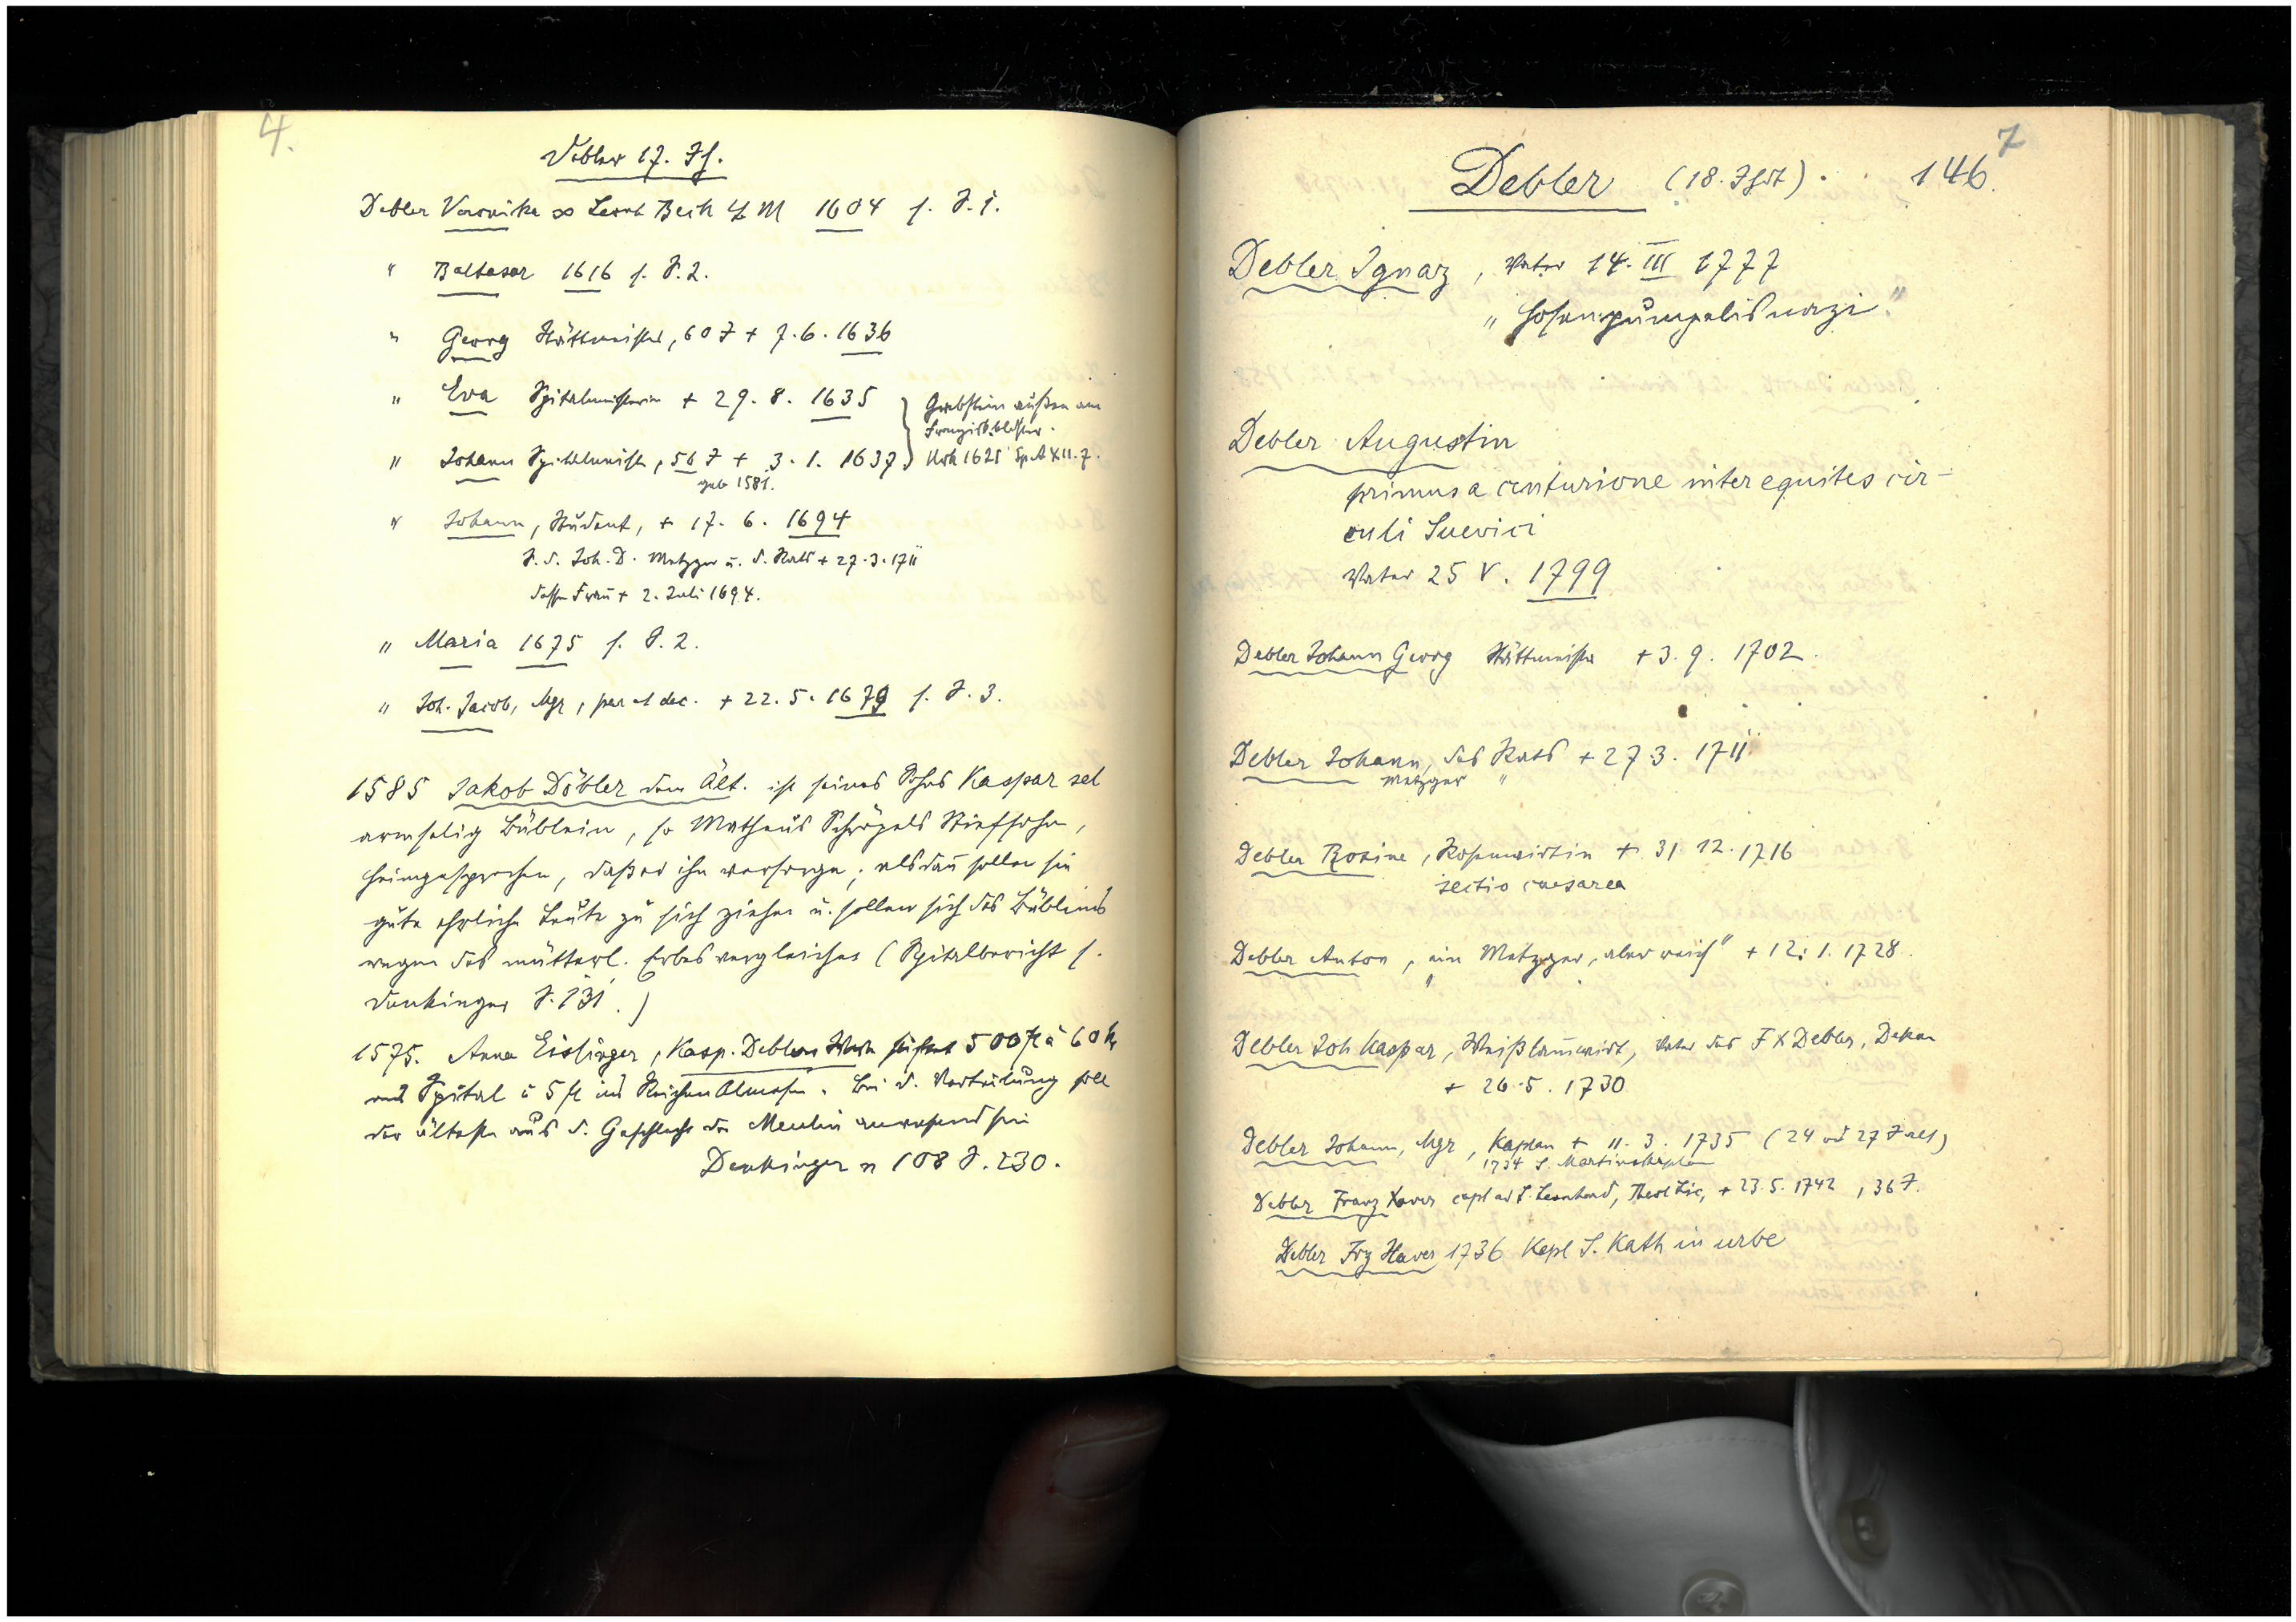 4.
Debler 17. Jh.
Debler Veronika ∞ Leonh Beck 4 M 1604 s. S. 1.
" Baltasar 1616 s. S. 2.
" Georg Stättmeister, 60 J + 7. 6. 1636
" Eva Spitalmeisterin + 29. 8. 1635 } Grabstein außen am
Franzisk.kloster.
" Johann Spitalmeister, 56 J + 3. 1. 1637 } Urk 1625 Sp.A XII. 7.
geb 1581.
" Johann, Student, + 17. 6. 1694
S. d. Joh. D. Metzger u. d. Rats + 27. 3. 1711
dessen Frau + 2. Juli 1694.
" Maria 1675 s. S. 2.
" Joh. Jacob, Mgr, par et dec. + 22. 5. 1679 s. S. 3.
1585 Jakob Döbler dem Ält. ist seines Sohns Kaspar sel
armselig Büblein, so Matheus Schrögels Stiefsohn,
heimgesprochen, daß er ihn versorge; alsdann sollen sie
gute ehrliche Leute zu sich ziehen u. sollen sich des Büblins
wegen des mütterl. Erbes vergleichen (Spitalbericht s.
Denkinger S. 131.)
1575. Anna Eislinger, Kasp. Deblers Witwe stiftet 500 fl à 60 kr
ins Spital u 5 fl ins Reichen Almosen. Bei d. Verteilung soll
der älteste aus d. Geschlecht der Meulin anwesend sein
Denkinger n 108 S. 230.
7
Debler (18. Jhdt). 146.
Debler Ignaz, Vater 14. III 1777
"Hosenpumpelisnazi"
Debler Augustin
primus a centurione inter equites cir-
culi Suevici
Vater 25 V. 1799
Debler Johann Georg Stättmeister + 3. 9. 1702.
Debler Johann, des Rats + 27. 3. 1711
Metzger "
Debler Rosine, Rosenwirtin + 31 12. 1716
sectio caesarea
Debler Anton, "ein Metzger, aber reich" + 12. 1. 1728.
Debler Joh Kaspar, Weißlammwirt, Vater des F X Debler, Dekan
+ 26. 5. 1730
Debler Johann, Mgr, Kaplan + 11. 3. 1735 (24 od 27 J alt)
1734 S. Martinskaplan
Debler Franz Xaver capl ad S. Leonhard, Theol Lic, + 23. 5. 1742, 36 J.
Debler Frz Xaver 1736 Kapl S. Kath in urbe